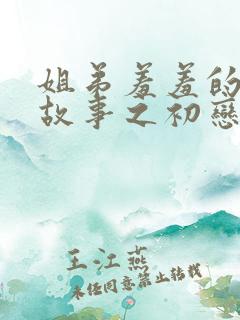 姐弟羞羞的
故事之初戀
王江燕
未经同意禁止转载